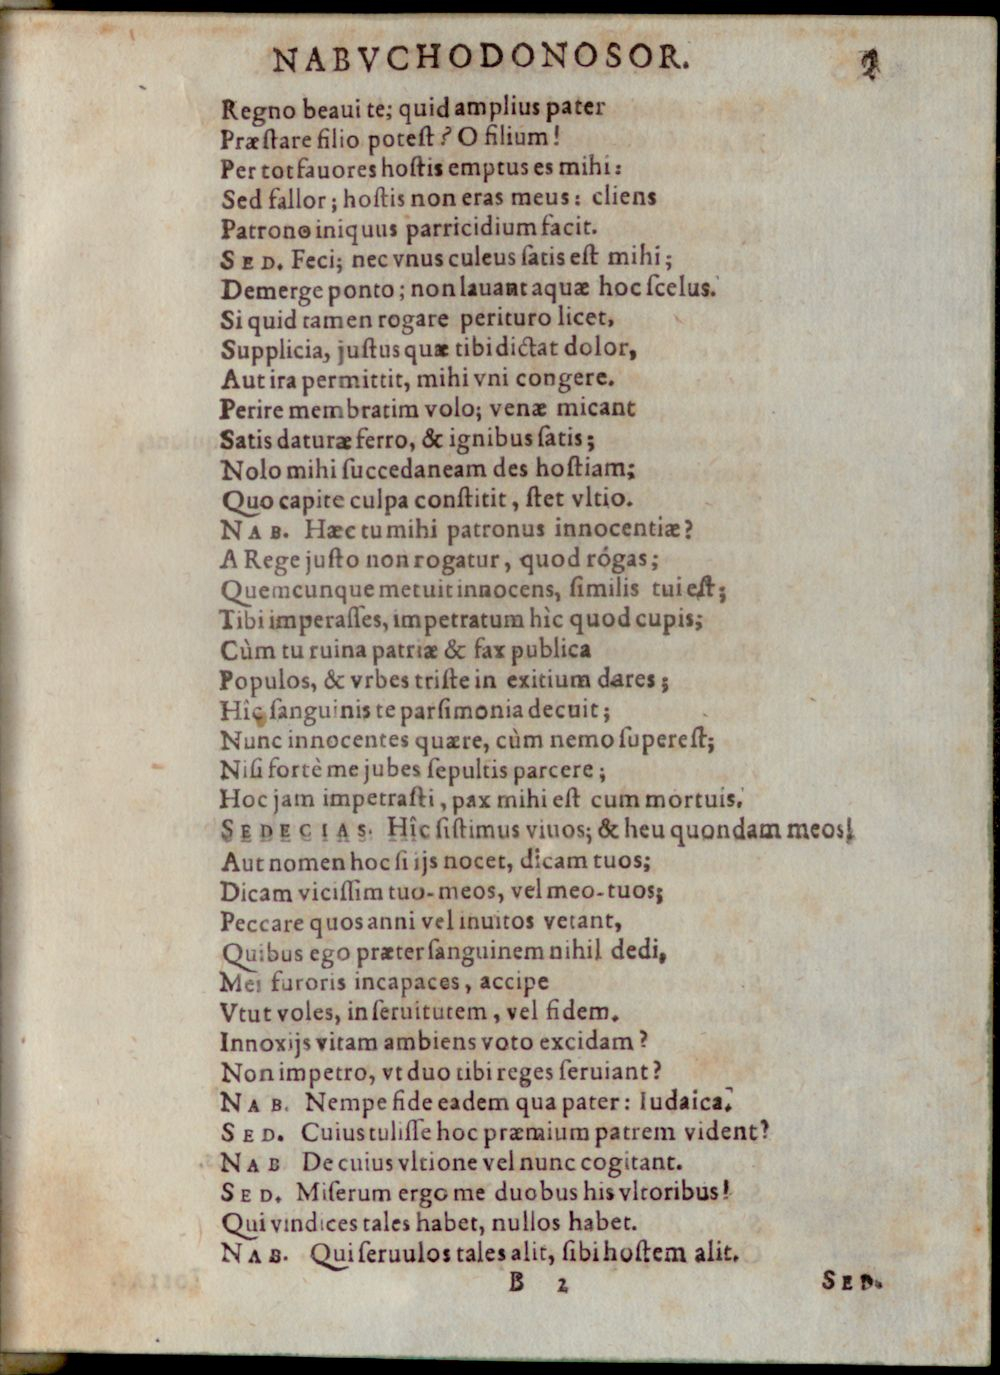 NABVCHODONOSOR.
Regno beaui te; quid amplius pater
Præſtare filio poteſt? O filium!
Per tot fauores hoſtis emptus es mihi:
Sed fallor; hoſtis non eras meus: cliens
Patrono iniquus parricidium facit.
SED. Feci; nec vnus culeus ſatis eſt mihi;
Demerge ponto; non lauant aquæ hoc ſcelus.
Si quid tamen rogare perituro licet,
Supplicia, juſtus quæ tibi dictat dolor,
Aut ira permittit, mihi vni congere.
Perire membratim volo; venæ micant
Satis daturæ ferro, & ignibus ſatis;
Nolo mihi ſuccedaneam des hoſtiam;
Quo capite culpa conſtitit, ſtet vltio.
NAB. Hæc tu mihi patronus innocentiæ?
A Rege juſto non rogatur, quod rógas;
Quemcunque metuit innocens, ſimilis tui eſt;
Tibi imperaſſes, impetratum hìc quod cupis;
Cùm tu ruina patriæ & fax publica
Populos, & vrbes triſte in exitium dares;
Hîc ſanguinis te parſimonia decuit;
Nunc innocentes quære, cùm nemo ſupereſt;
Niſi fortè me jubes ſepultis parcere;
Hoc jam impetraſti, pax mihi eſt cum mortuis.
SEDECIAS. Hîc ſiſtimus viuos; & heu quondam meos!
Aut nomen hoc ſi ijs nocet, dicam tuos;
Dicam viciſſim tuo-meos, vel meo-tuos;
Peccare quos anni vel inuitos vetant,
Quibus ego præter ſanguinem nihil dedi,
Mei furoris incapaces, accipe
Vtut voles, in ſeruitutem, vel fidem.
Innoxijs vitam ambiens voto excidam?
Non impetro, vt duo tibi reges ſeruiant?
NAB. Nempe fide eadem qua pater: Iudaica.
SED. Cuius tuliſſe hoc præmium patrem vident?
NAB De cuius vltione vel nunc cogitant.
SED. Miſerum ergo me duobus his vltoribus!
Qui vindices tales habet, nullos habet.
NAB. Qui ſeruulos tales alit, ſibi hoſtem alit.
B 2 SED.